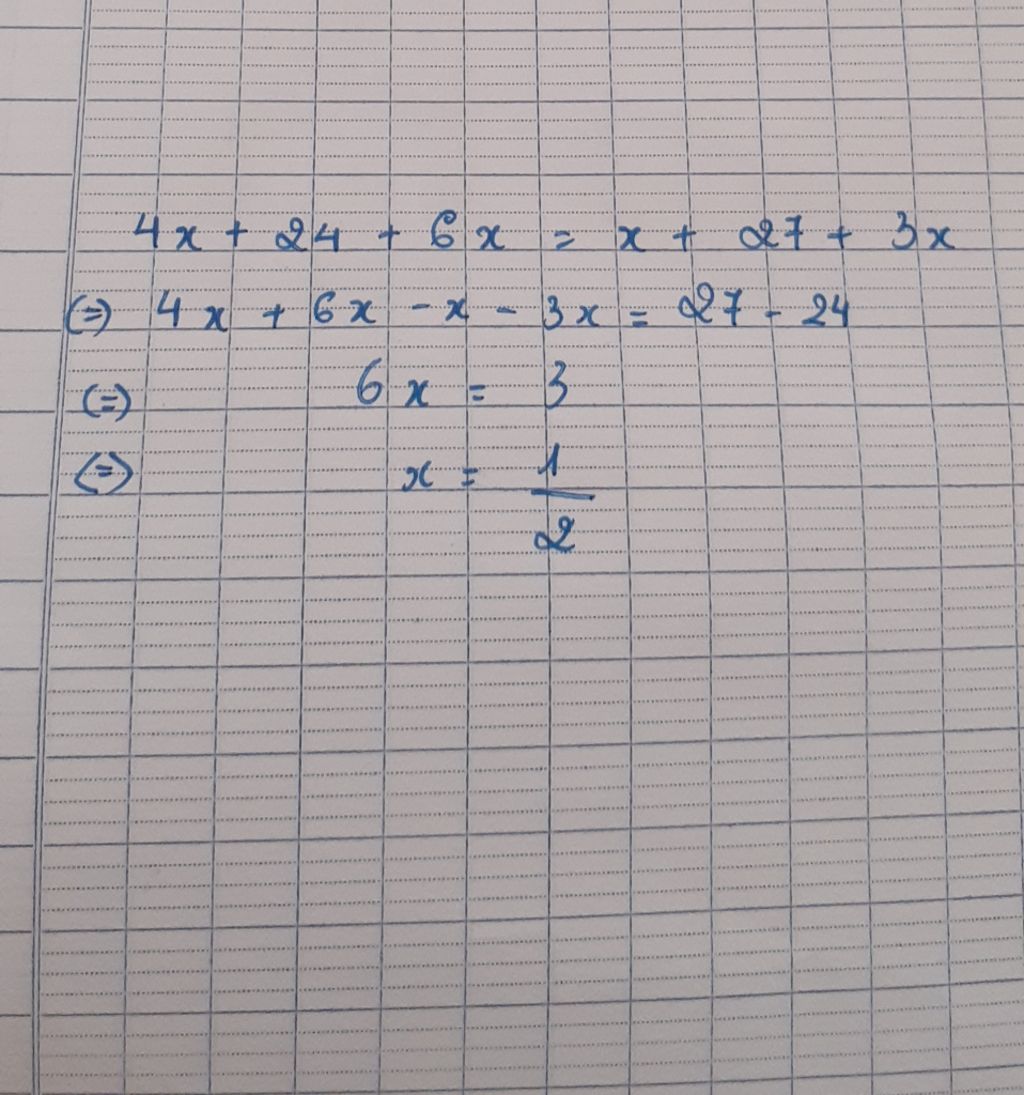 4x + 24 + 6x = x + 27 + 3x
(=) 4x + 6x - x - 3x = 27 - 24
(=) 6x = 3
(=) x = 1/2